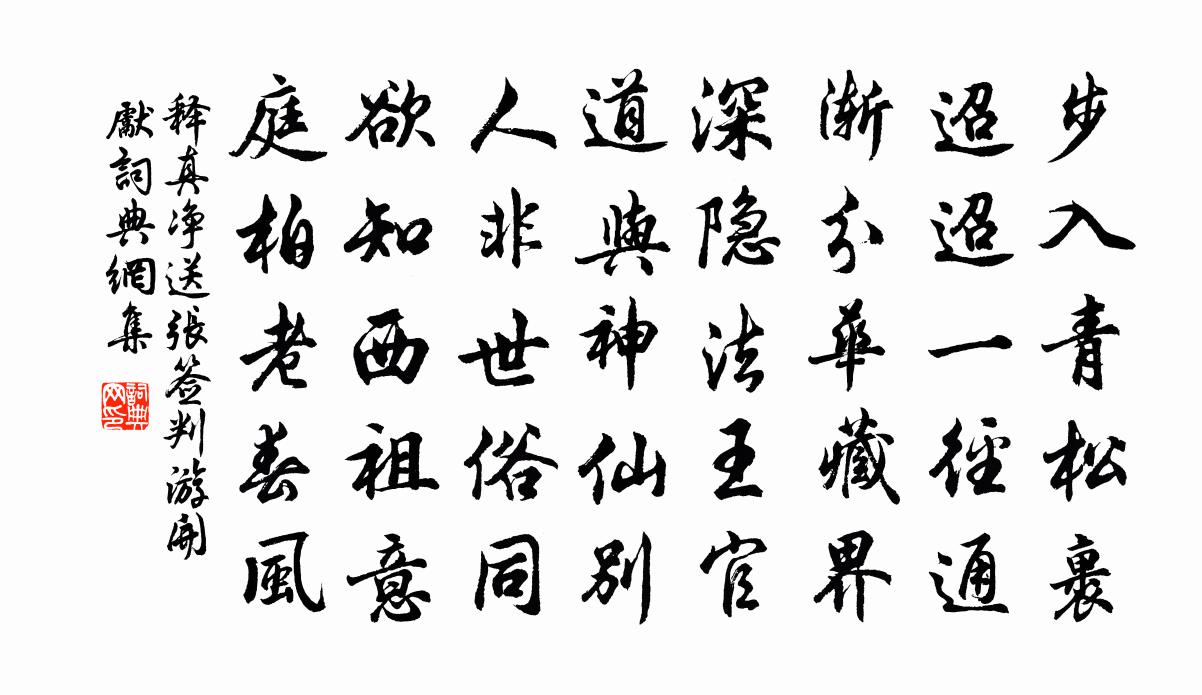 步入青松裏
迢迢一徑通
漸分華藏界
深隐法王宫
道與神仙别
人非世俗同
欲知西祖意
庭柏老春風
释真净送張签判游開
獻詞典網集
詞典网印